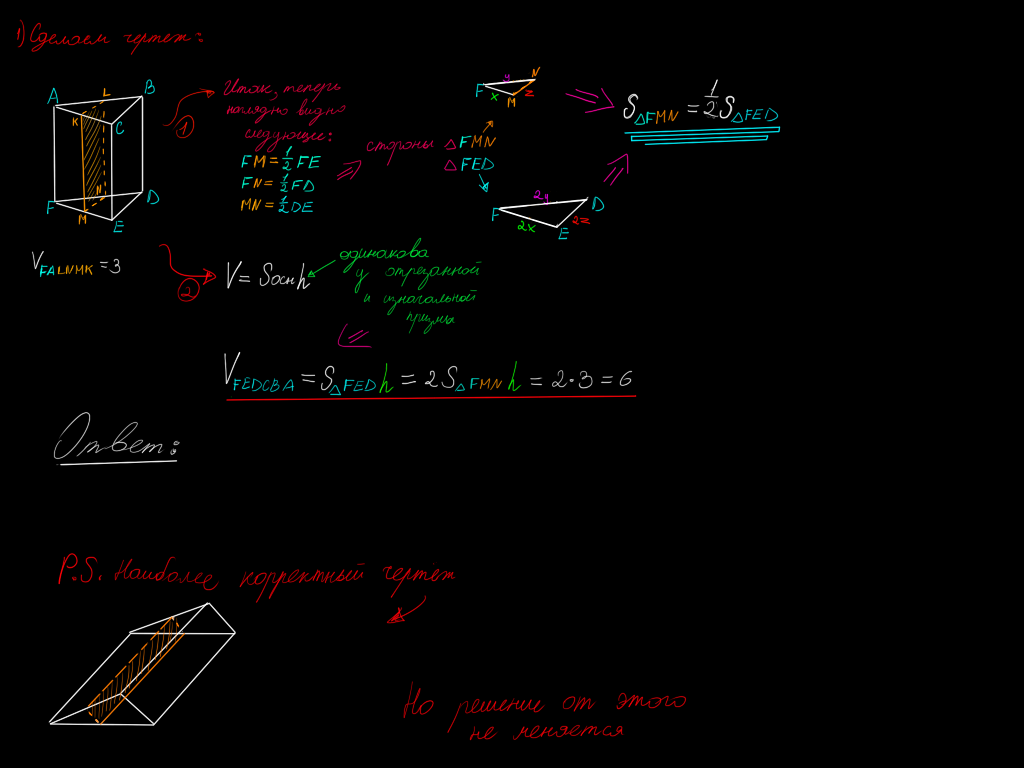 1) Сделаем чертеж:
A L B
K C
F N D
M E
V FALNMK = 3
1
Итак, теперь
наглядно видно
следующие:
FM = 1/2 FE
FN = 1/2 FD
MN = 1/2 DE
=> стороны △FMN
△FED
F y N
x M z
F 2y D
2x E 2z
=> S△FMN = 1/2 S△FED
2
V = Sосн h
одинакова
у отрезанной
и изначальной
призмы
V FEDCBA = S△FED h = 2S△FMN h = 2·3 = 6
Ответ:
P.S. Наиболее корректный чертеж
Но решение от этого
не меняется